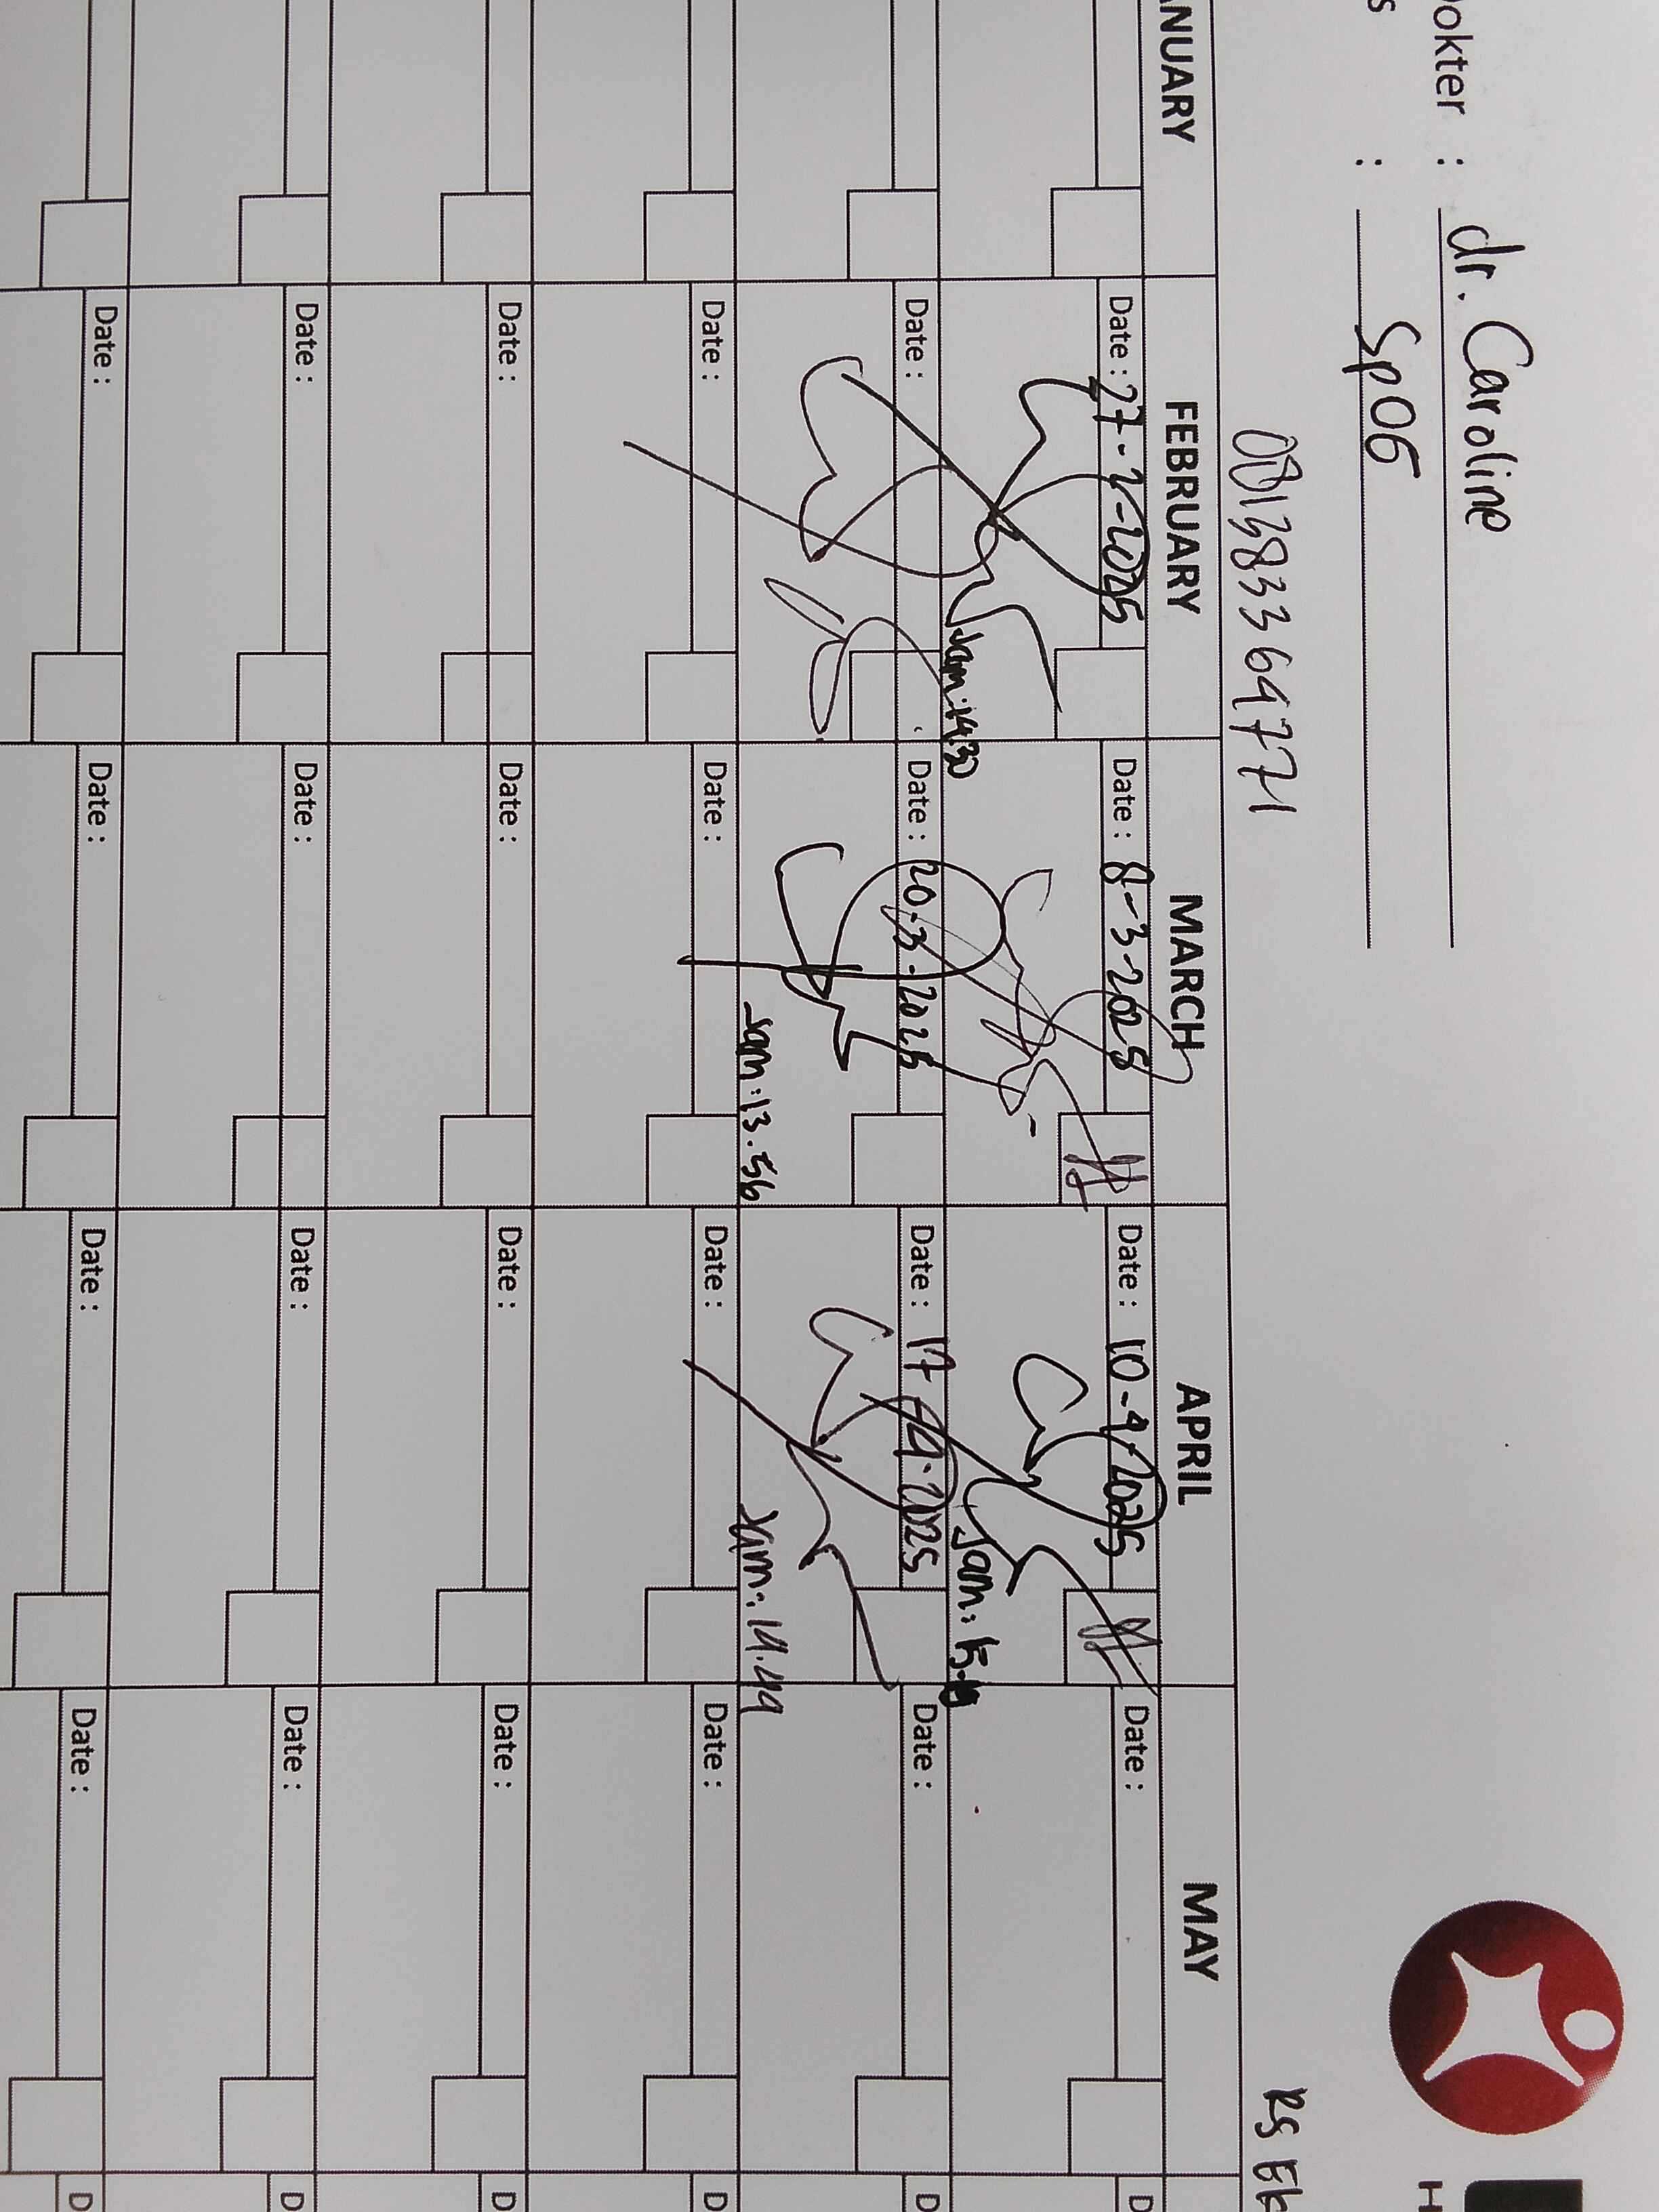 okter : dr. Caroline
s : SpOG
081383364771
RS Ek
H
ANUARY FEBRUARY MARCH APRIL MAY
Date : 27-2-2025 Date : 8-3-2025 Date : 10-4-2025 Date : D
Jam: 14.30 Jam: 15.
Date : Date : 20-3-2025 Date : 17-4-2025 Date : D
Jam: 13.56 Jam: 14.49
Date : Date : Date : Date : D
Date : Date : Date : Date : D
Date : Date : Date : Date : D
Date : Date : Date : Date : D